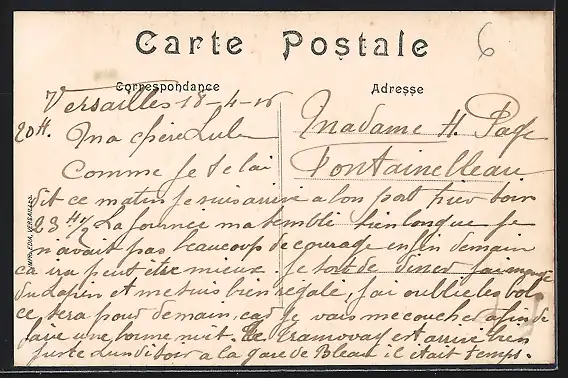 Carte Postale
6
Correspondance
Adresse
Versailles 18-4-16
20H. Ma chère Lulu
Madame H. Page
Fontainelleau
Comme je te lai
dit ce matin je suis arrivé a bon port hier soir
23 H 1/2 La journée ma semblé bien longue je
n'avait pas beaucoup de courage enfin demain
ca ira peut être mieux. Je sort de diner j'ai mangé
du lapin et me suis bien régalé, j'ai oublié les bols
ce sera pour demain, car je vais me coucher afin de
faire une bonne nuit. Le Tramway est arrivé bien
juste Lundi soir a la gare de Bleau il était temps.
IMP. L. EDIA, VERSAILLES